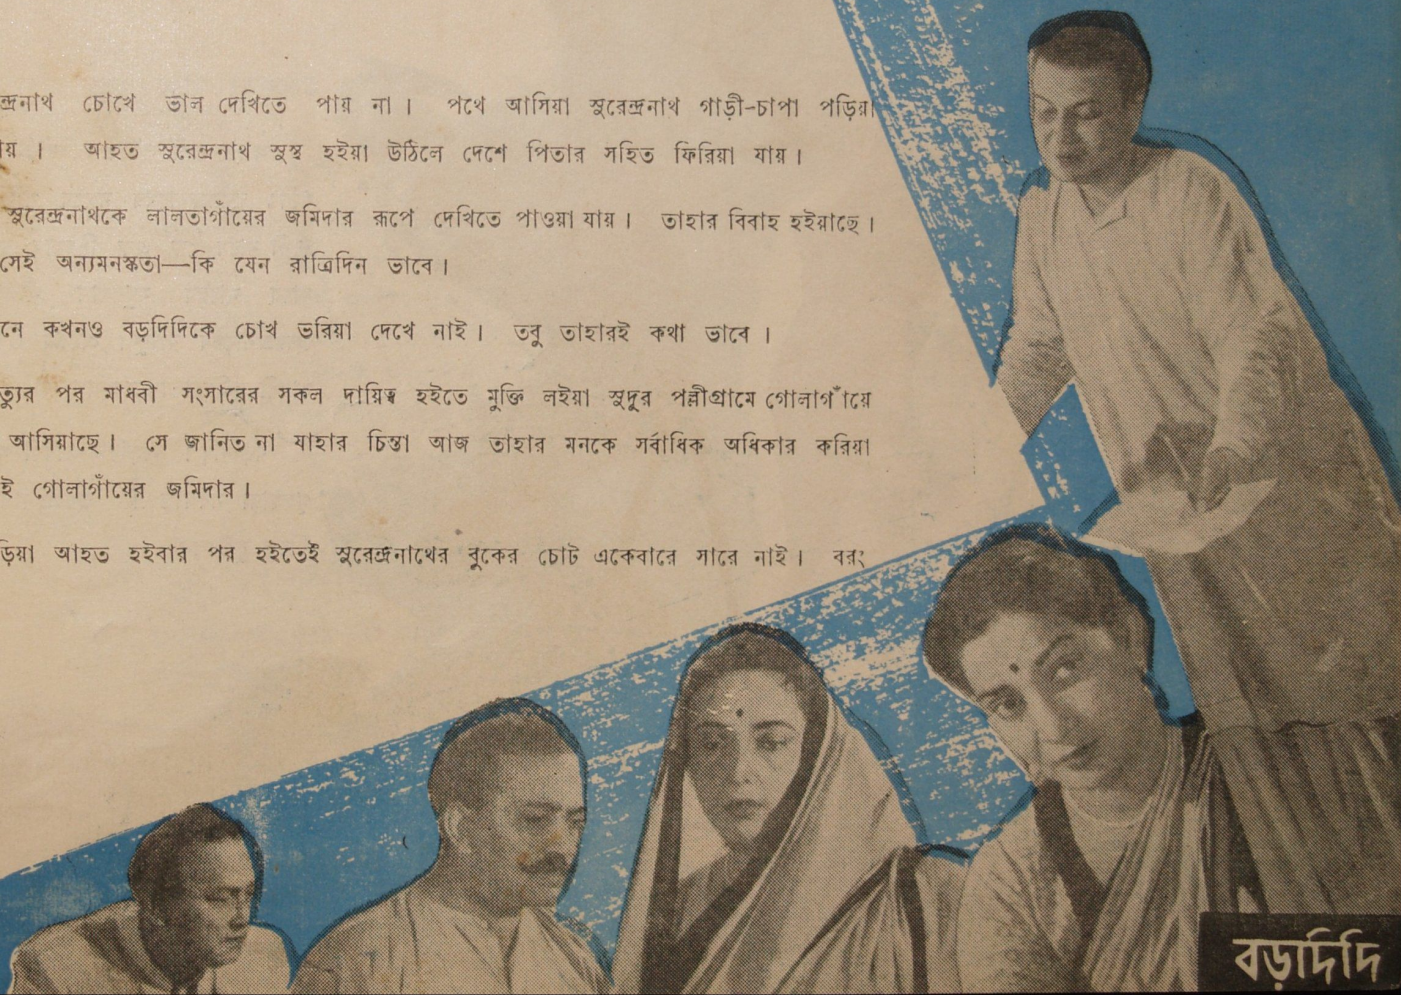 ন্দ্রনাথ চোখে ভাল দেখিতে পায় না। পথে আসিয়া সুরেন্দ্রনাথ গাড়ী-চাপা পড়িয়া
য়। আহত সুরেন্দ্রনাথ সুস্থ হইয়া উঠিলে দেশে পিতার সহিত ফিরিয়া যায়।
সুরেন্দ্রনাথকে লালতাগাঁয়ের জমিদার রূপে দেখিতে পাওয়া যায়। তাহার বিবাহ হইয়াছে।
সেই অন্যমনস্কতা—কি যেন রাত্রিদিন ভাবে।
নে কখনও বড়দিদিকে চোখ ভরিয়া দেখে নাই। তবু তাহারই কথা ভাবে।
ত্যুর পর মাধবী সংসারের সকল দায়িত্ব হইতে মুক্তি লইয়া সুদূর পল্লীগ্রামে গোলাগাঁয়ে
আসিয়াছে। সে জানিত না যাহার চিন্তা আজ তাহার মনকে সর্বাধিক অধিকার করিয়া
ই গোলাগাঁয়ের জমিদার।
ড়িয়া আহত হইবার পর হইতেই সুরেন্দ্রনাথের বুকের চোট একেবারে সারে নাই। বরং
বড়দিদি